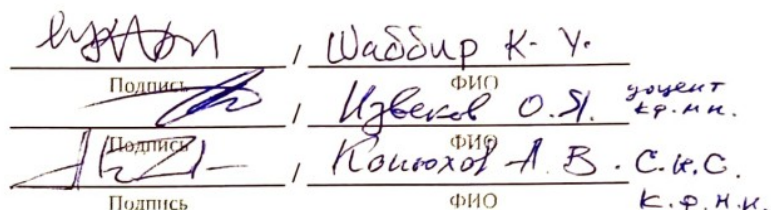 / Шаббир К. У.
Подпись ФИО
/ Извеков О.Я. доцент к.ф.м.н.
Подпись ФИО
/ Конюхов А. В. с.н.с.
Подпись ФИО к.ф.м.н.